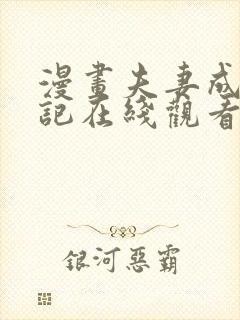 漫畫夫妻成
記在綫觀看
銀河惡霸